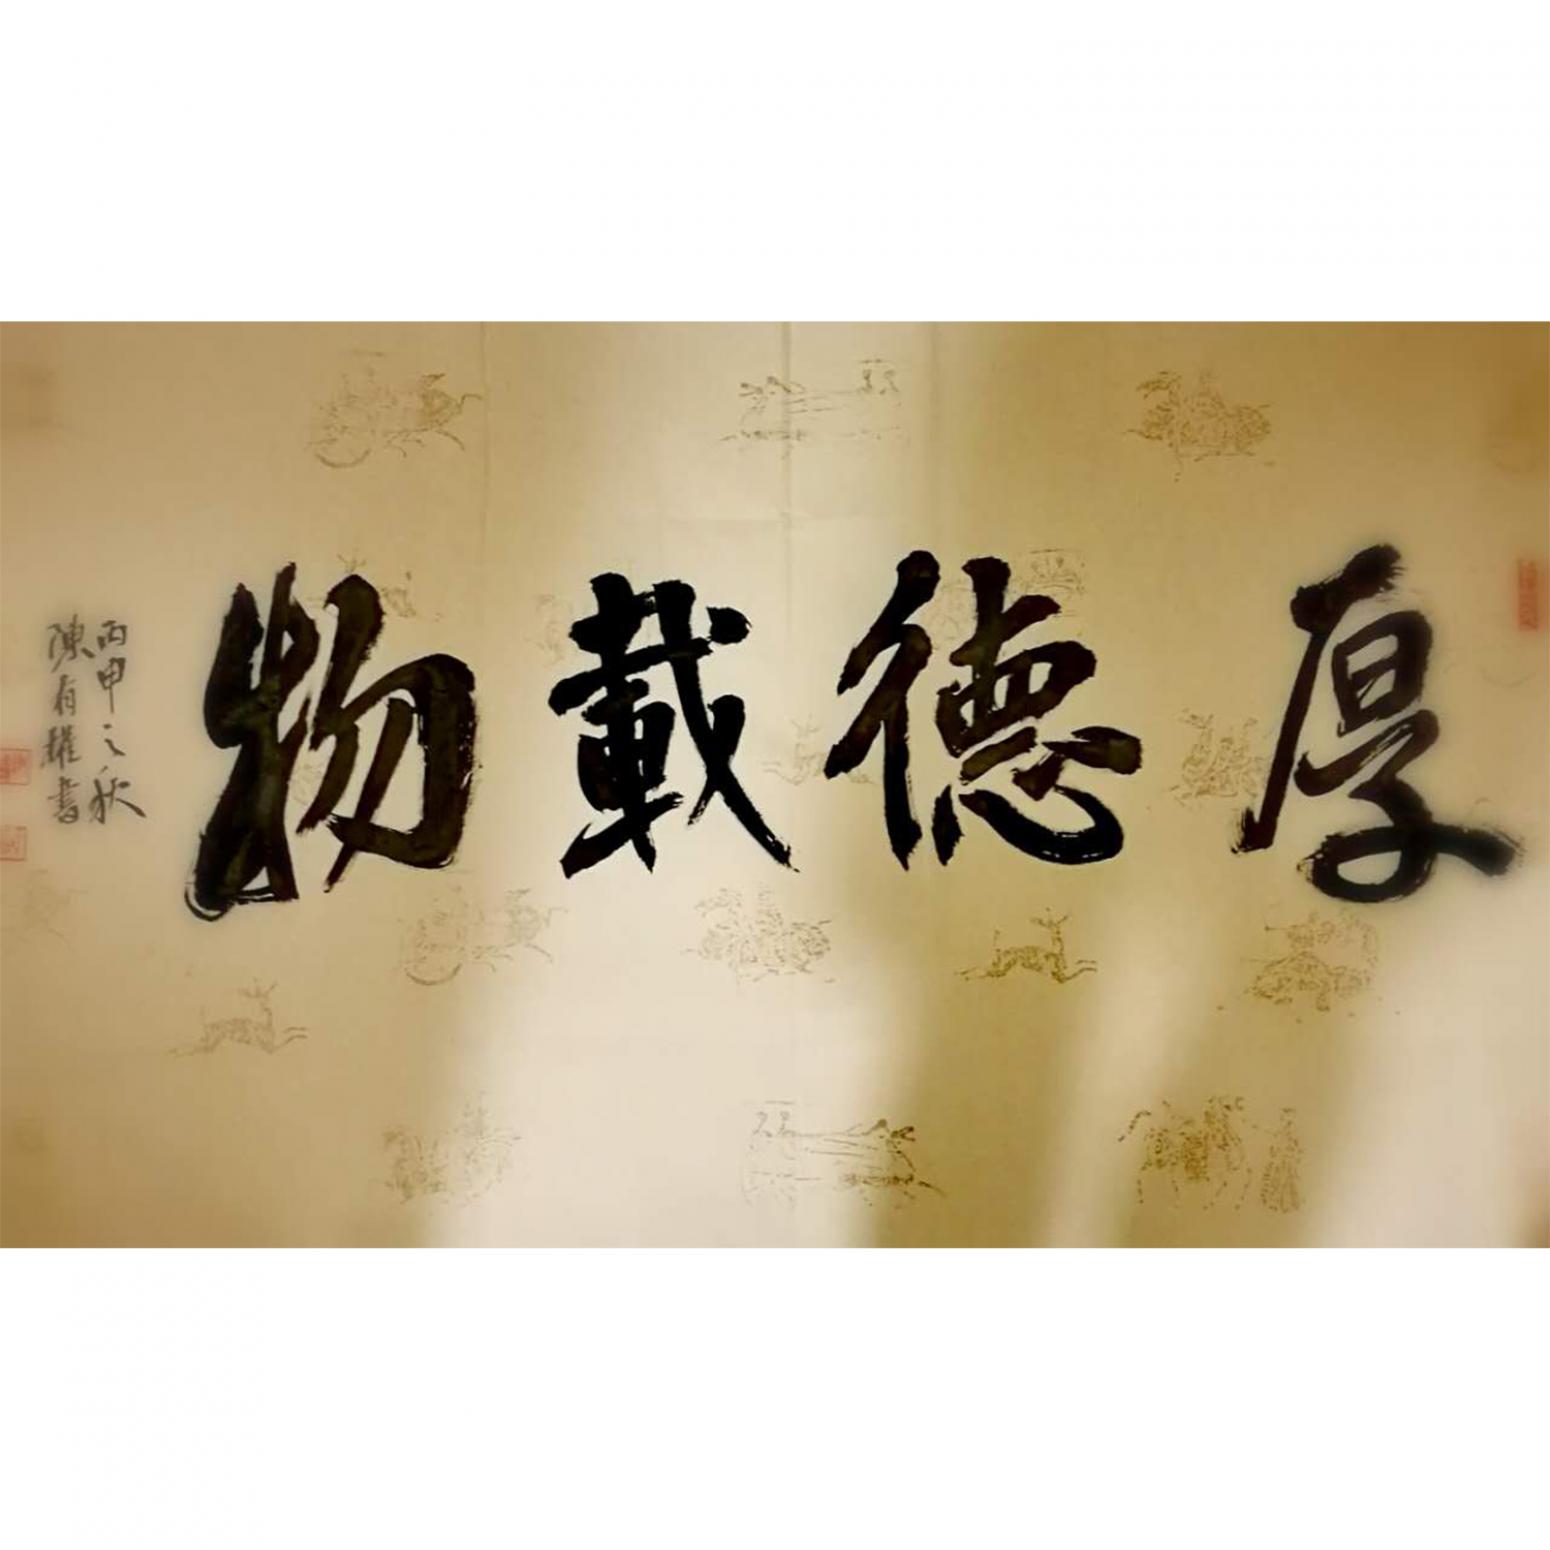 厚德載物
丙申之秋
陳有權書